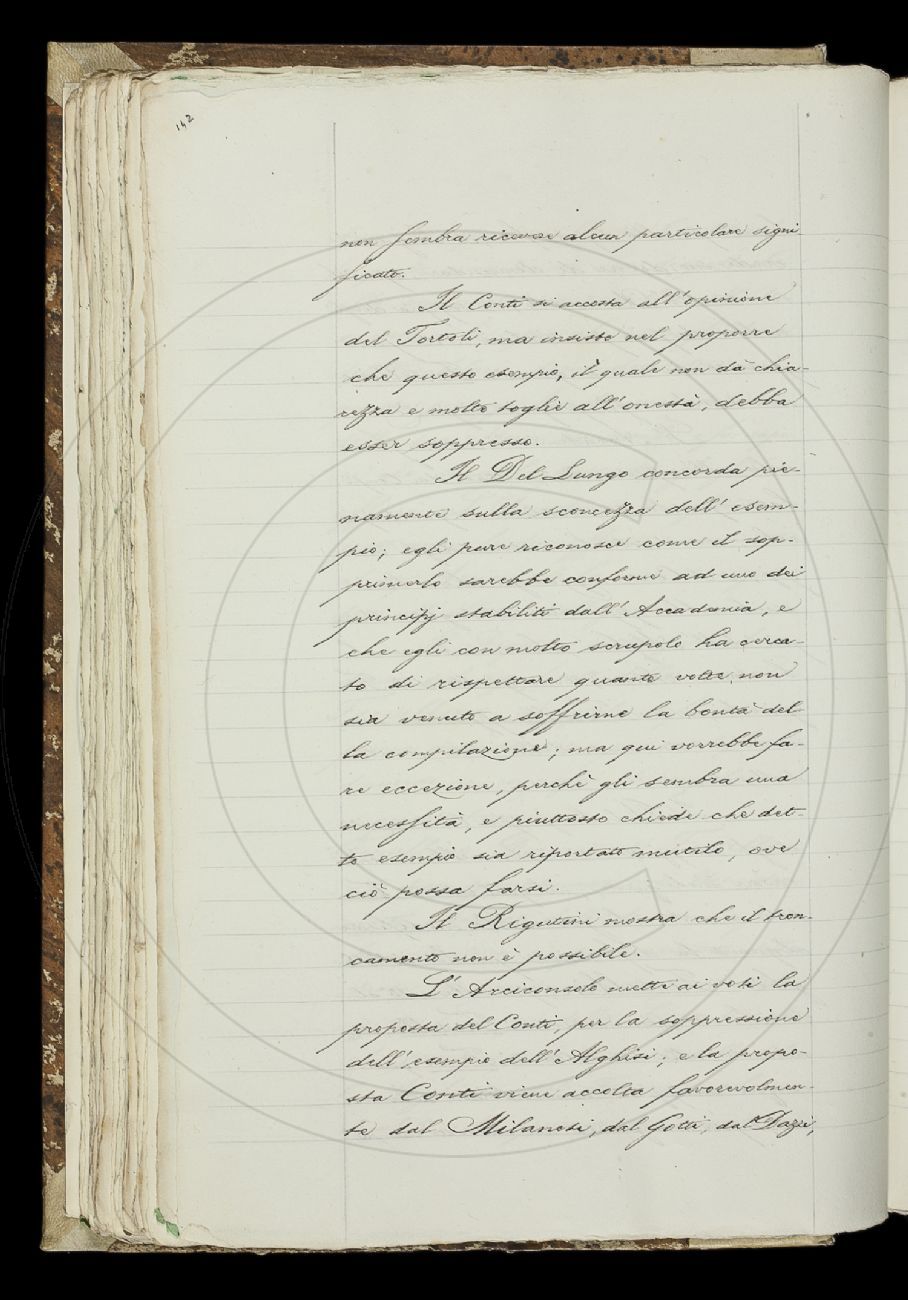 142
non sembra ricevere alcun particolare signi
ficato.
Il Conti si accosta all'opinione
del Tortoli, ma insiste nel proporre
che questo esempio, il quale non dà chia-
rezza e molto toglie all'onestà, debba
esser soppresso.
Il Del Lungo concorda pie-
namente sulla sconcezza dell'esem-
pio; egli pure riconosce come il sop-
primerlo sarebbe conforme ad uno dei
principj stabiliti dall'Accademia, e
che egli con molto scrupolo ha cerca-
to di rispettare quante volte non
sia venuto a soffrirne la bontà del-
la compilazione; ma qui vorrebbe fa-
re eccezione, perchè gli sembra una
necessità, e piuttosto chiede che det-
to esempio sia riportato mutilo, ove
ciò possa farsi.
Il Rigutini mostra che il tron-
camento non è possibile.
L'Arciconsolo mette ai voti la
proposta del Conti, per la soppressione
dell'esempio dell'Alghisi; e la propo-
sta Conti viene accolta favorevolmen-
te dal Milanesi, dal Gotti, dal Dazzi,